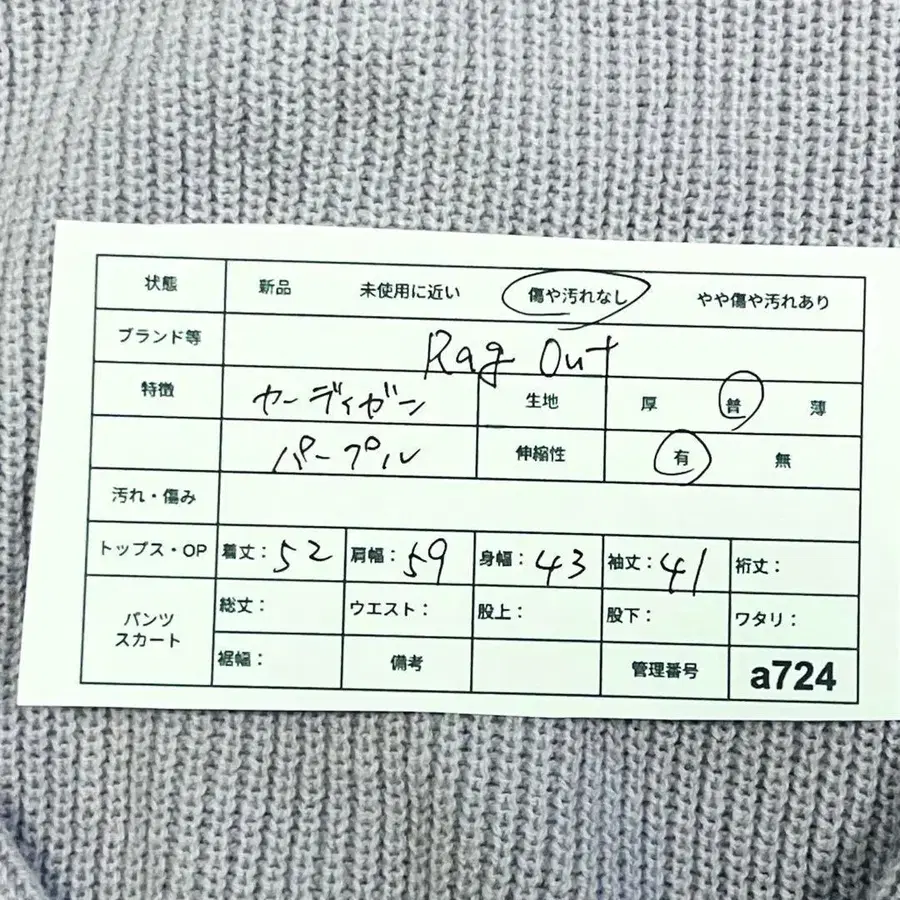 状態 新品 未使用に近い 傷や汚れなし やや傷や汚れあり
ブランド等 Rag Out
特徴 カーディガン 生地 厚 普 薄
パープル 伸縮性 有 無
汚れ・傷み
トップス・OP 着丈：52 肩幅：59 身幅：43 袖丈：41 裄丈：
パンツ スカート 総丈： ウエスト： 股上： 股下： ワタリ：
裾幅： 備考 管理番号 a724